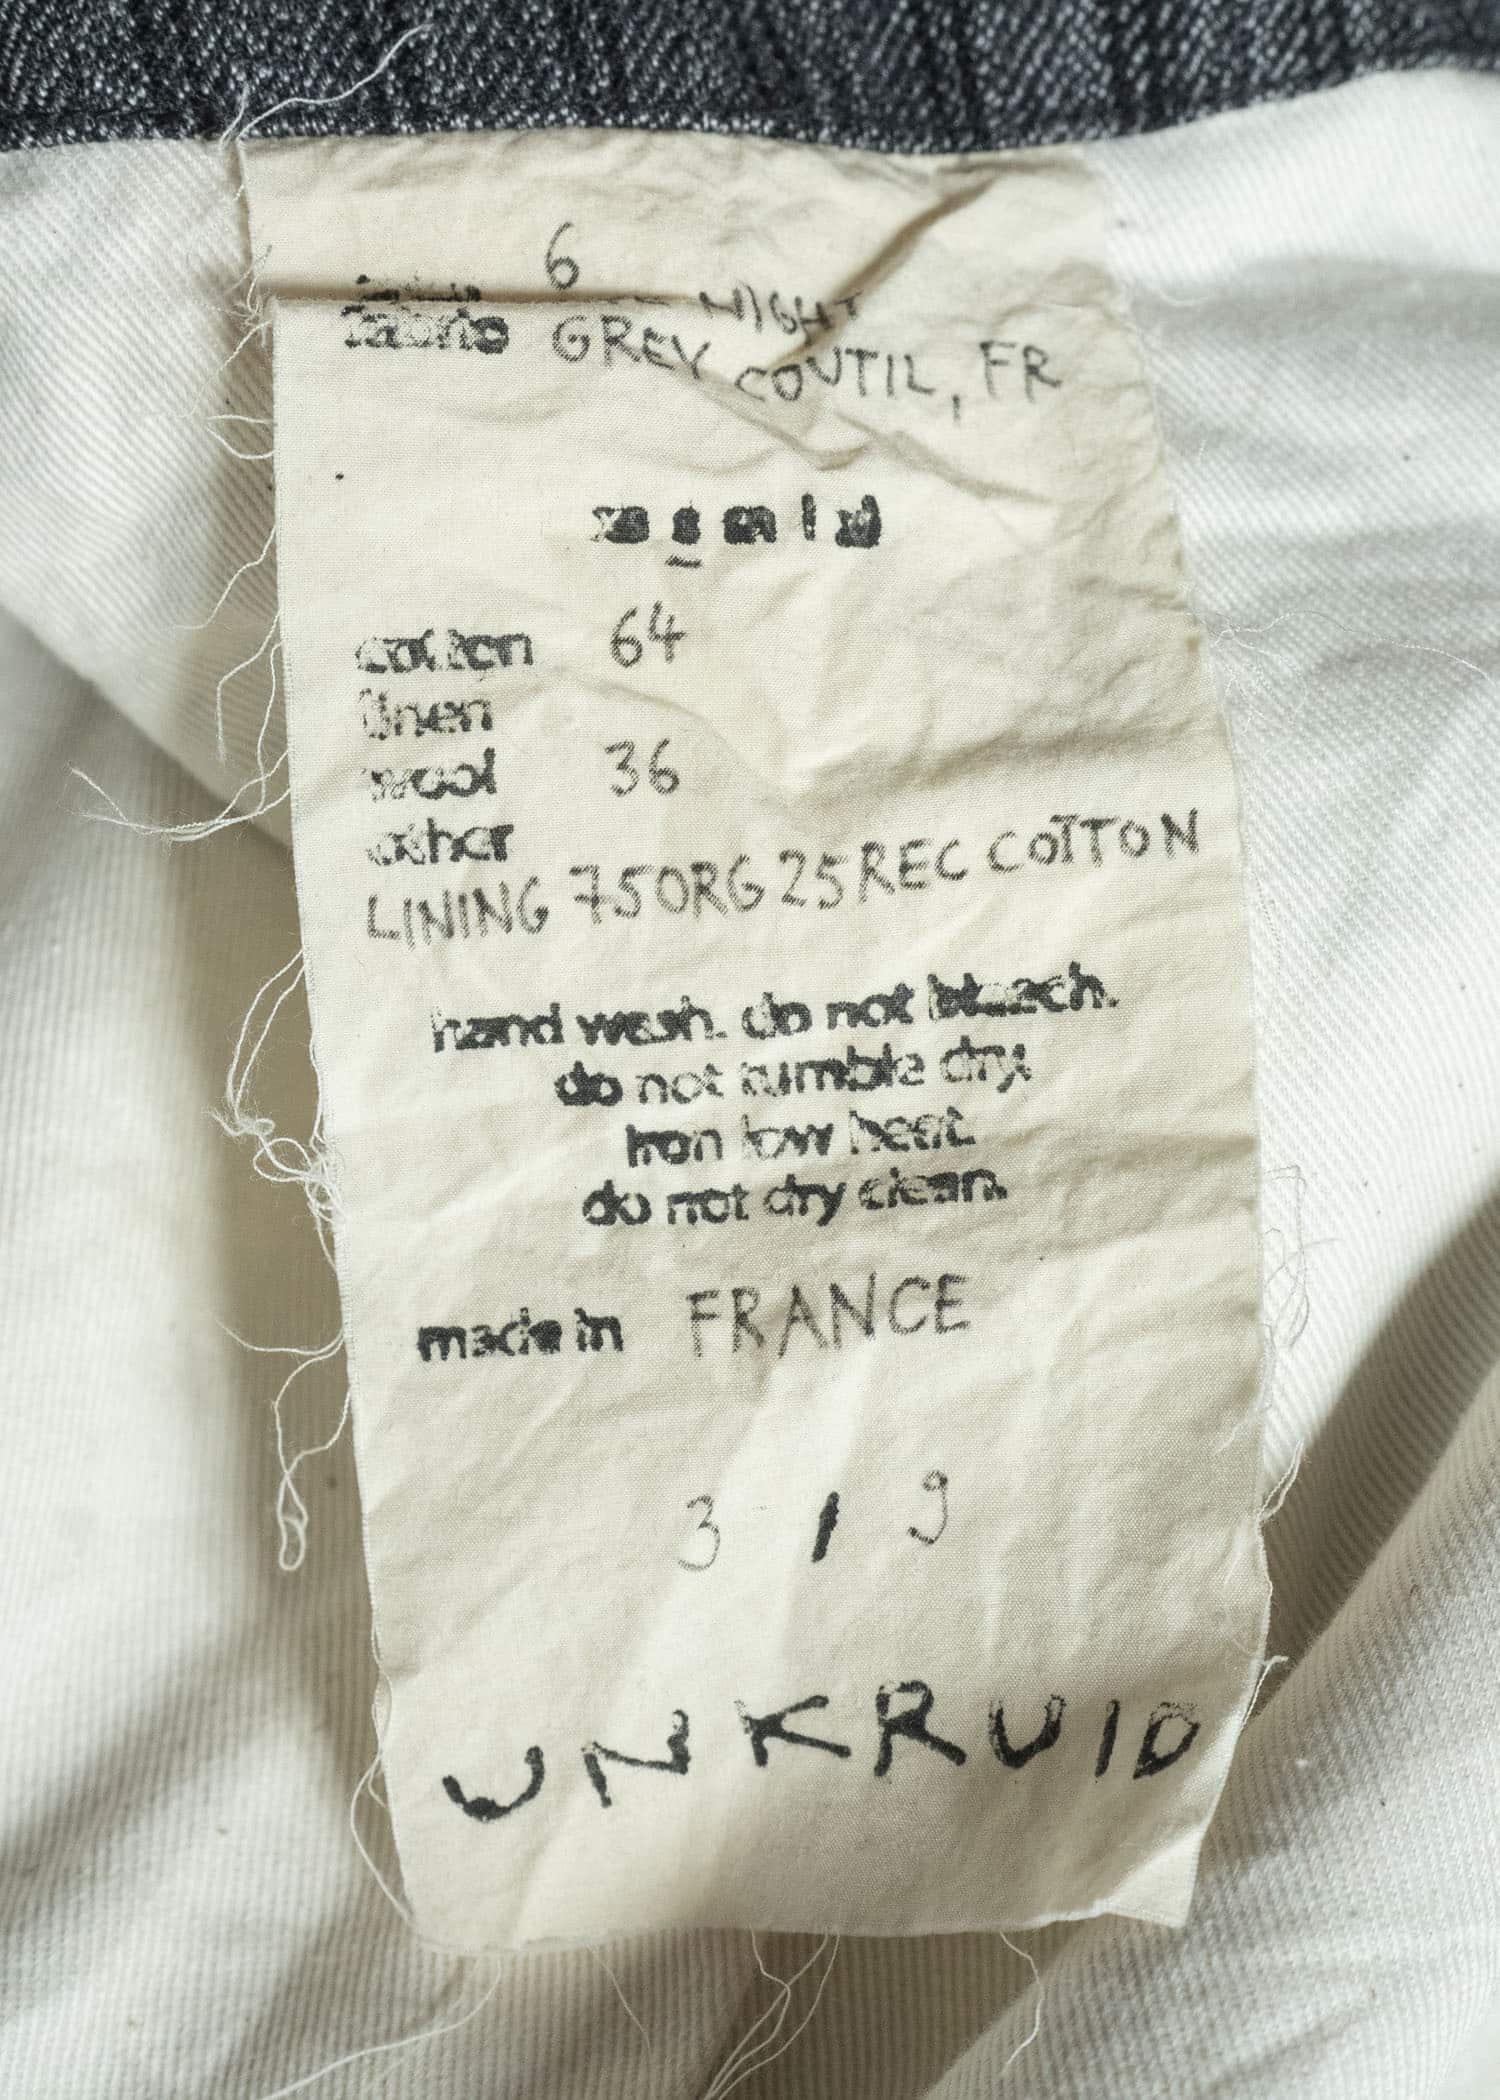 6
NIGHT
fabric GREY COUTIL, FR
xs s m l xl
cotton 64
linen
wool 36
other
LINING 75ORG 25REC COTTON
hand wash. do not bleach.
do not tumble dry.
iron low heat.
do not dry clean.
made in FRANCE
3 / 9
UNKRUID